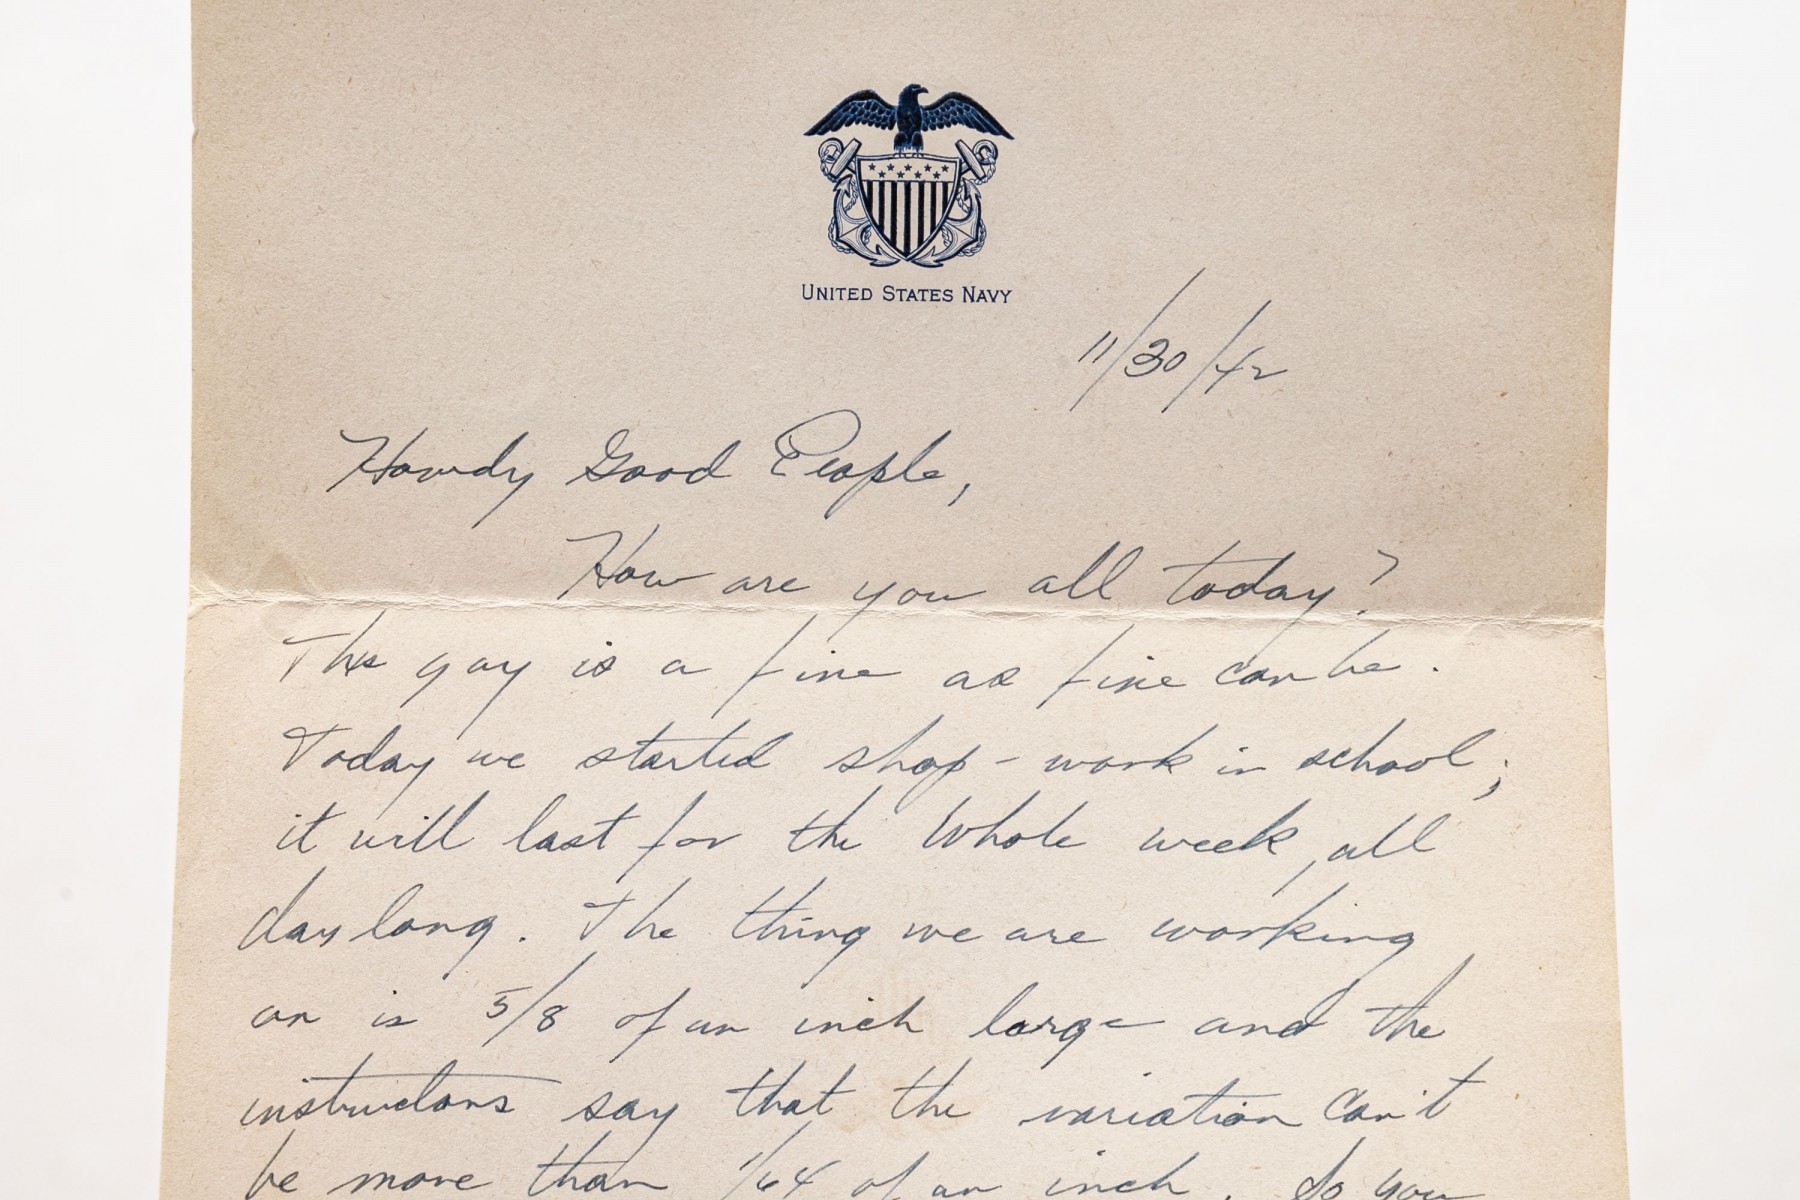 UNITED STATES NAVY
11/30/42
Howdy Good People,
How are you all today?
This guy is a fine as fine can be.
Today we started shop-work in school;
it will last for the whole week, all
day long. The thing we are working
on is 5/8 of an inch large and the
instructors say that the variation can't
be more than 1/64 of an inch. So you